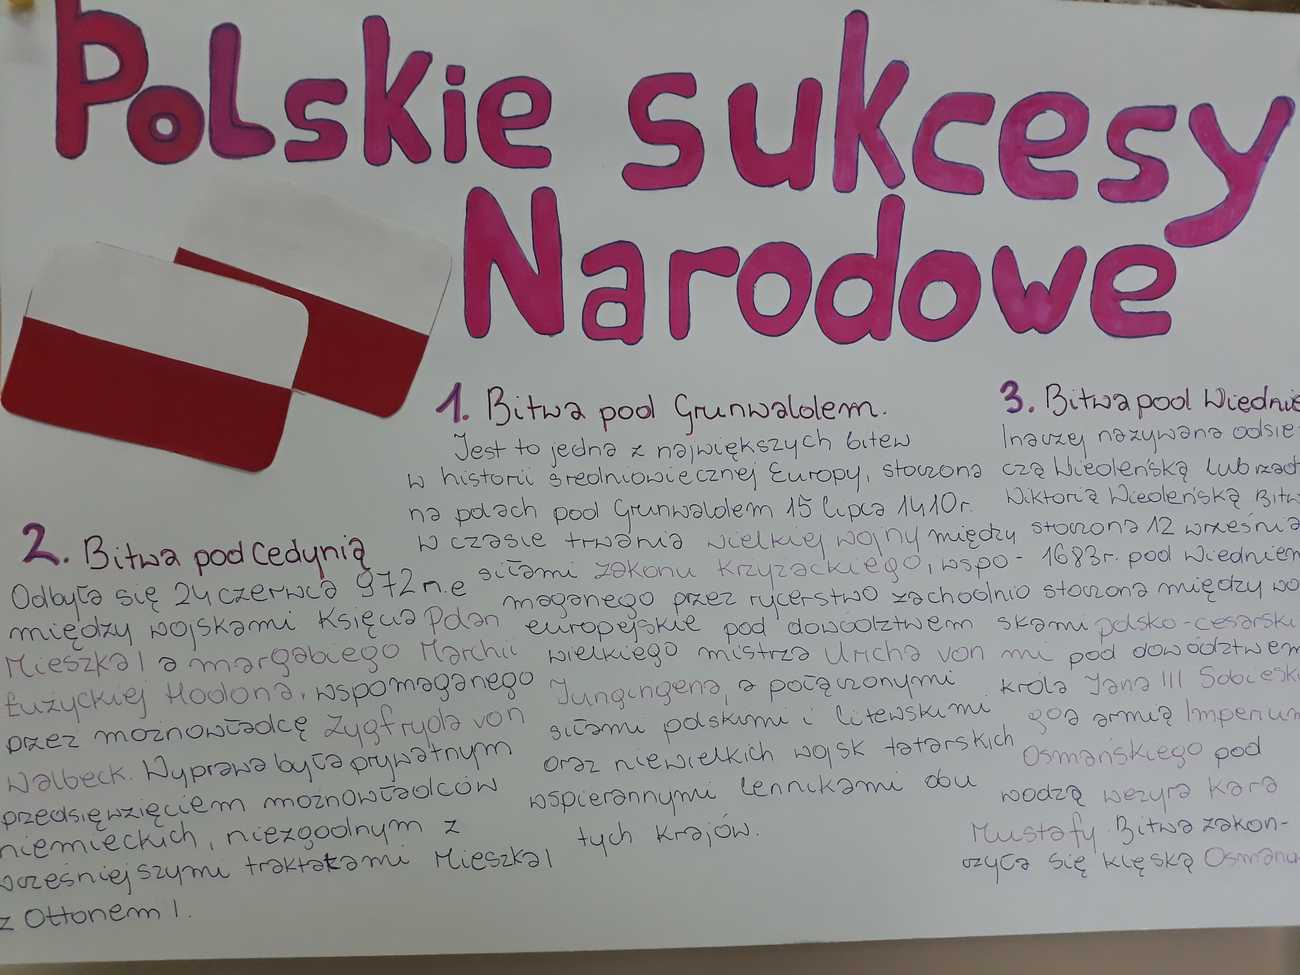 Polskie sukcesy
Narodowe
1. Bitwa pod Grunwaldem.
Jest to jedna z największych bitew
w historii średniowiecznej Europy, stoczona
na polach pod Grunwaldem 15 lipca 1410r.
w czasie trwania wielkiej wojny między
siłami zakonu krzyżackiego, wspo-
maganego przez rycerstwo zachodnio
europejskie pod dowództwem
wielkiego mistrza Ulricha von
Jungingena, a połączonymi
siłami polskimi i litewskimi
oraz niewielkich wojsk tatarskich
wspierannymi lennikami obu
tych krajów.
2. Bitwa pod Cedynią
Odbyła się 24 czerwca 972 n.e
między wojskami Księcia Polan
Mieszka I a margabiego Marchii
Łużyckiej Hodona, wspomaganego
przez możnowładcę Zygfryda von
Walbeck. Wyprawa była prywatnym
przedsięwzięciem możnowładców
niemieckich, niezgodnym z
wcześniejszymi traktatami Mieszka I
z Ottonem I.
3. Bitwa pod Wiednie
Inaczej nazywana odsie-
czą Wiedeńską lub rzad
Wiktorią Wiedeńską Bitw
stoczona 12 września
1683r. pod Wiedniem
stoczona między wo
skami polsko-cesarski
mi pod dowództwem
króla Jana III Sobiesk
go a armią Imperium
Osmańskiego pod
wodzą wezyra Kara
Mustafy. Bitwa zakon-
czyła się klęską Osmanó